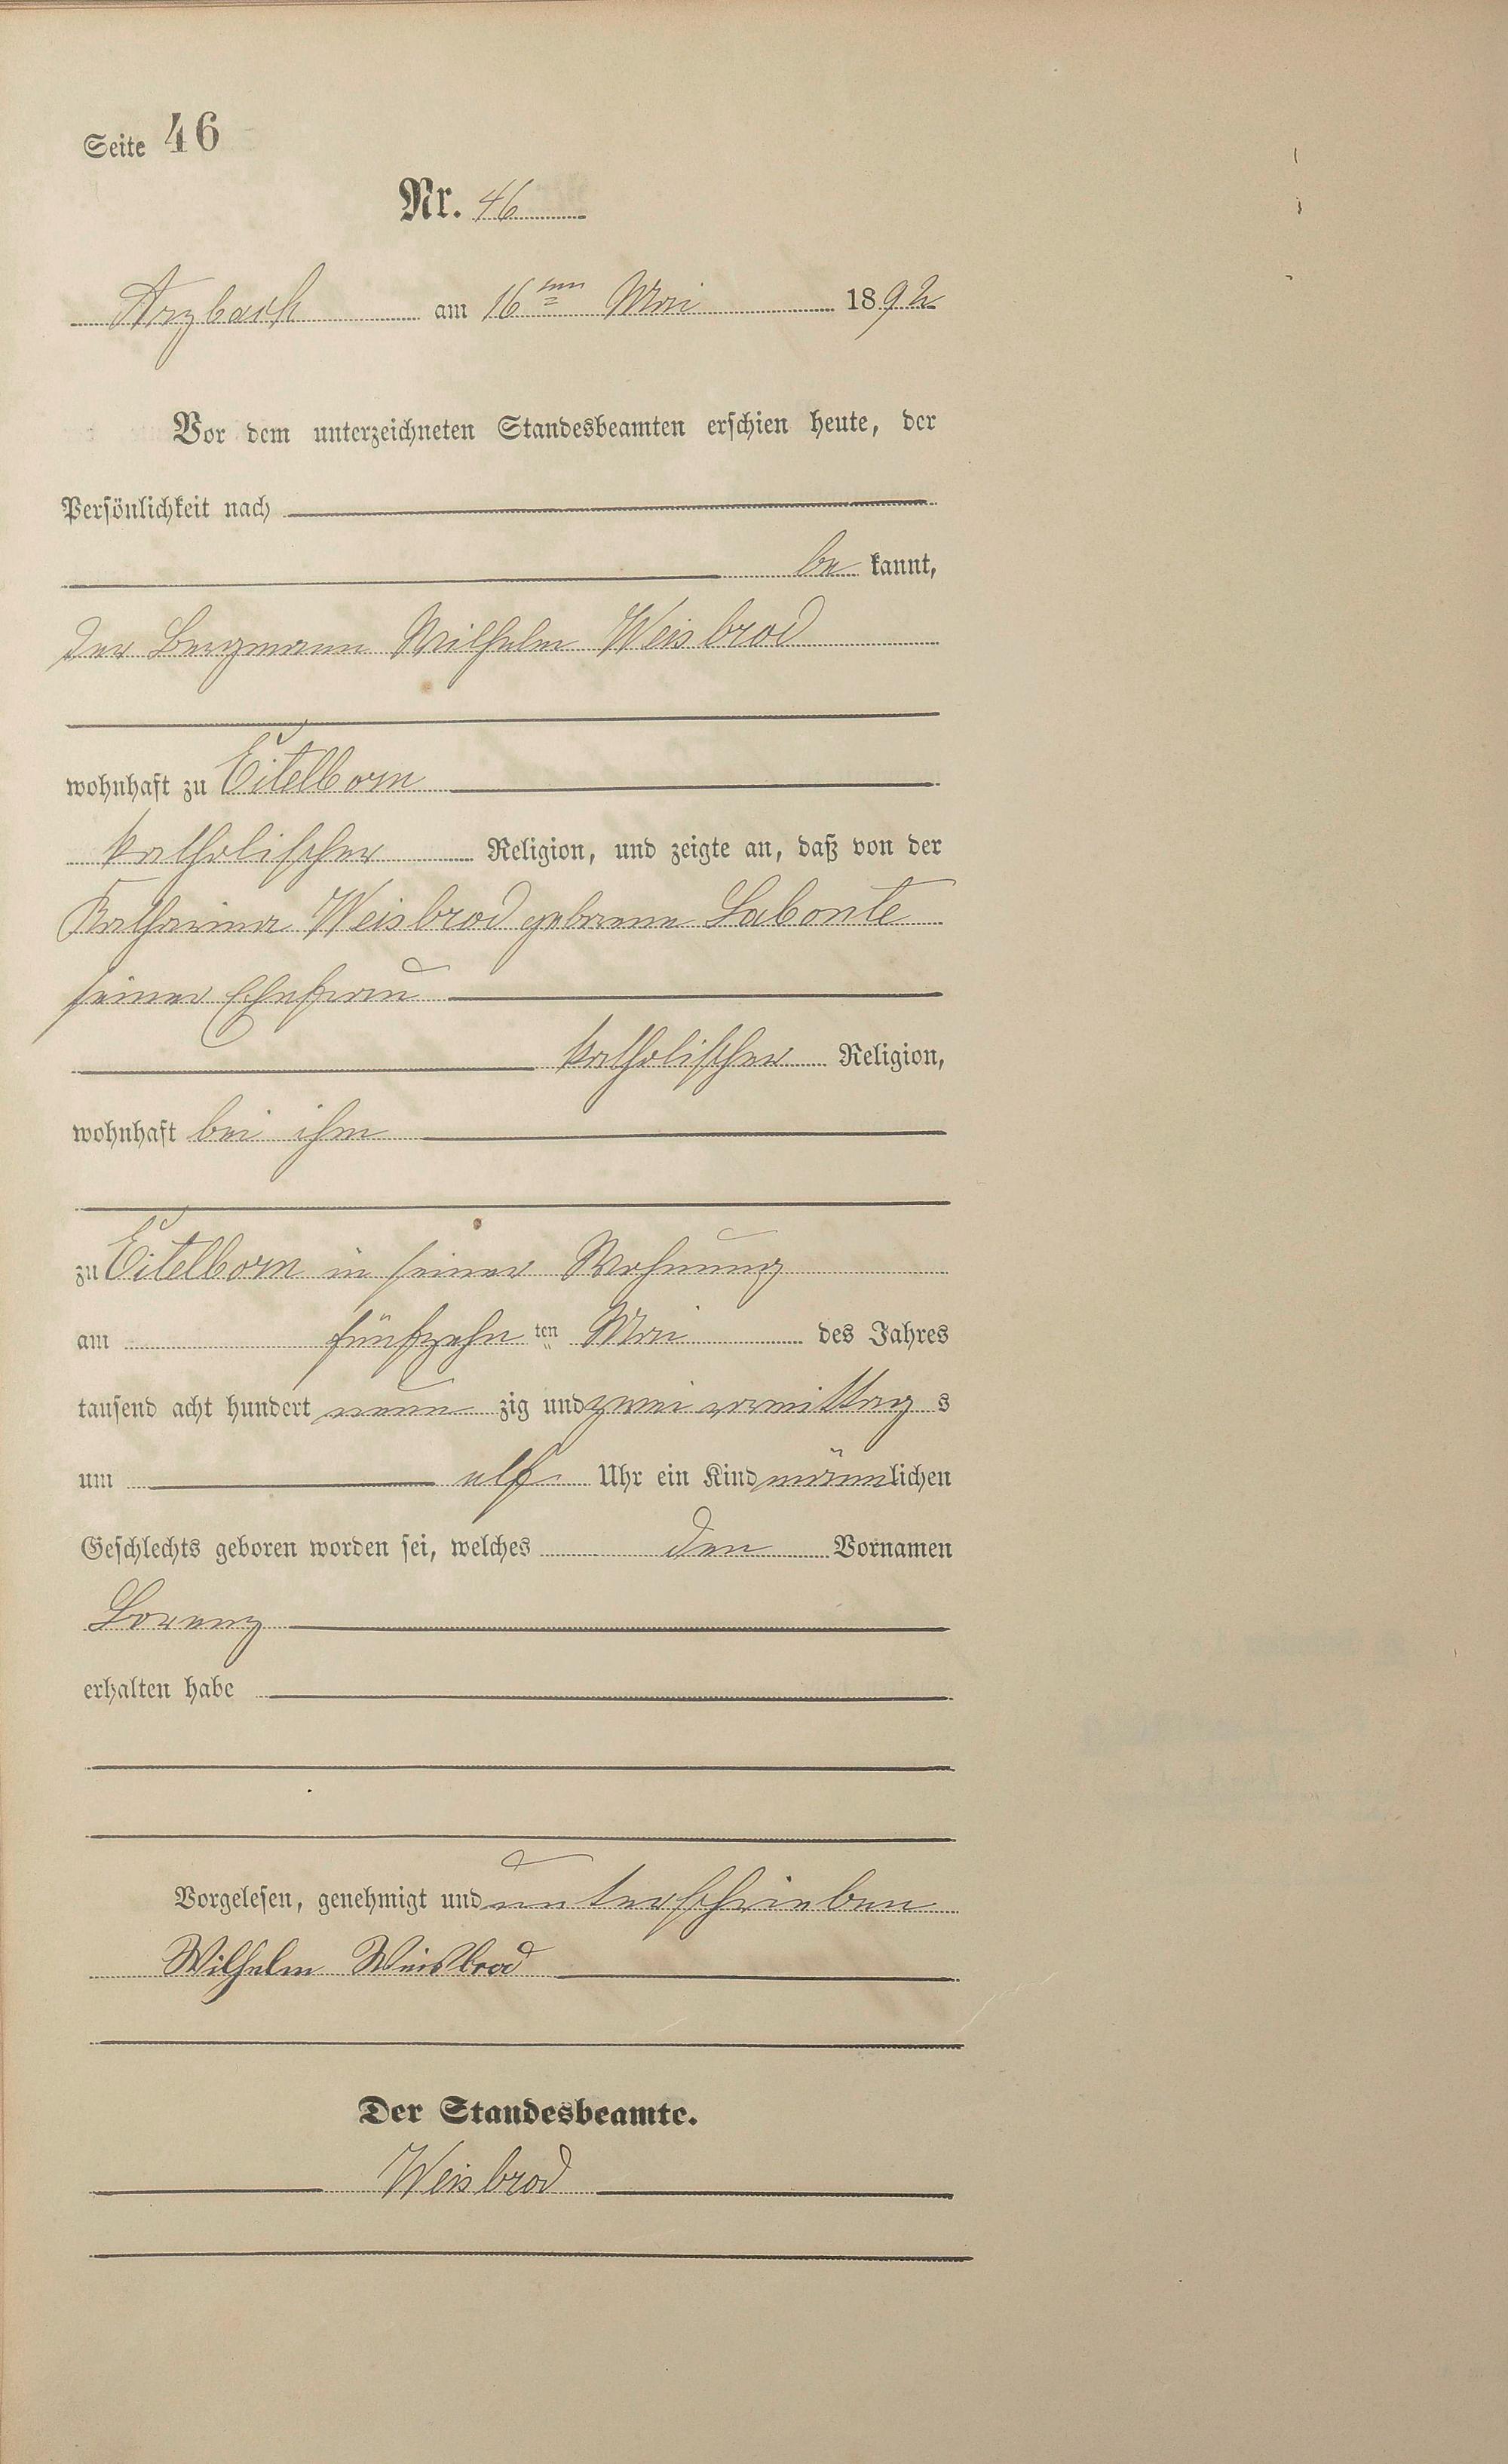 Seite 46
Nr. 46
Arzbach am 16ten Mai 1892
Vor dem unterzeichneten Standesbeamten erschien heute, der
Persönlichkeit nach
be kannt,
der Bergmann Wilhelm Weisbrod
wohnhaft zu Eitelborn
katholischer Religion, und zeigte an, daß von der
Katharina Weisbrod geborene Labonte
seiner Ehefrau
katholischer Religion,
wohnhaft bei ihm
zu Eitelborn in seiner Wohnung
am fünfzehn ten Mai des Jahres
tausend acht hundert neun zig und zwei vormittag s
um elf Uhr ein Kind männlichen
Geschlechts geboren worden sei, welches den Vornamen
Lorenz
erhalten habe
Vorgelesen, genehmigt und unterschrieben
Wilhelm Weisbrod
Der Standesbeamte.
Weisbrod